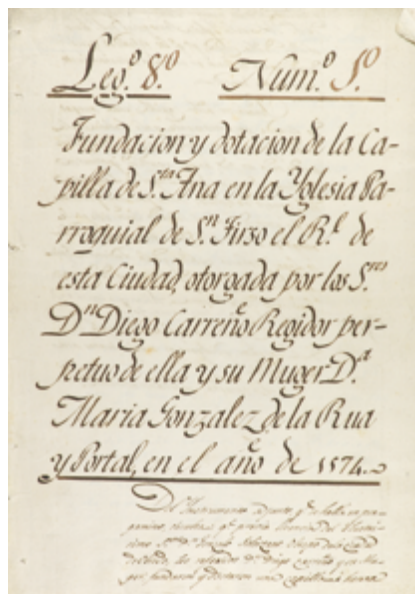 Leg.º 8.º Num.º 1.º
Fundacion y dotacion de la Ca-
pilla de S.ta Ana en la Yglesia Pa-
rroquial de S.n Tirso el R.l de
esta Ciudad, otorgada por los S.res
D.n Diego Carreño Regidor per-
petuo de ella y su Muger D.a
Maria Gonzalez de la Rua
y Portal, en el año de 1574.
Del Instrumento adjunto q.e se halla en per-
gamino,